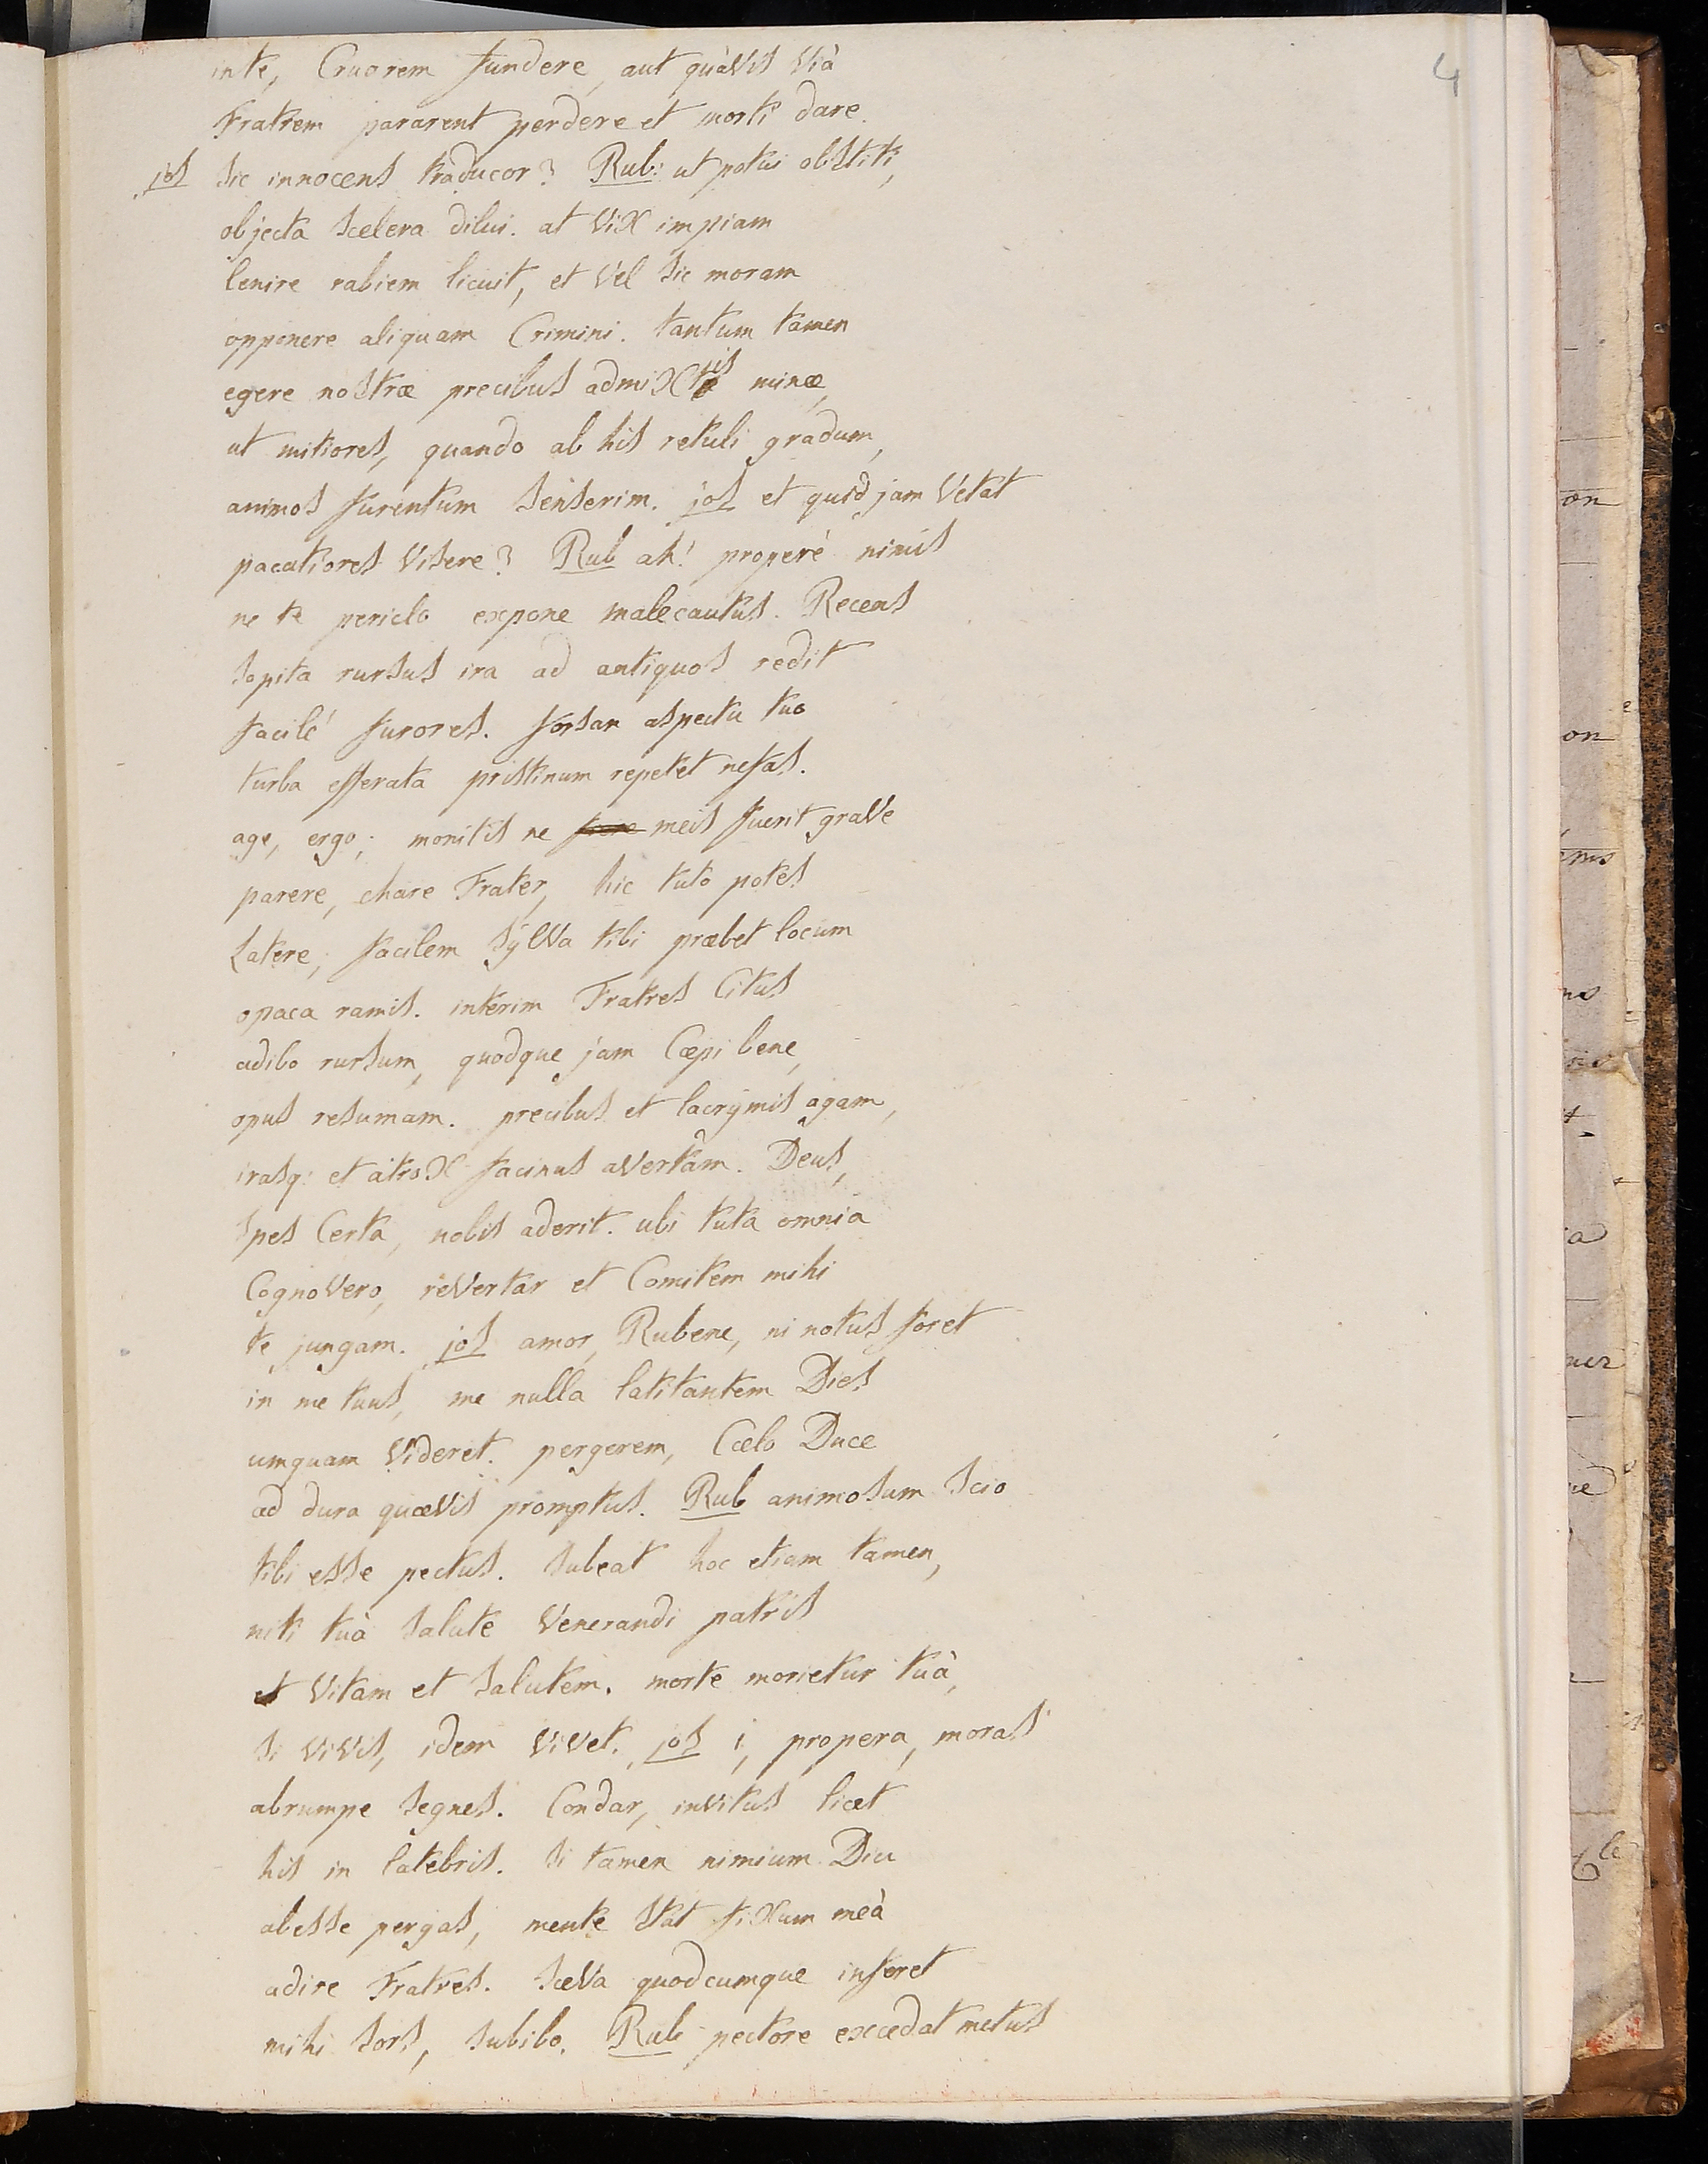 4
in te, Cruorem fundere, aut quàvis Vià
Fratrem pararent perdere et morti dare.
jos Sic innocens traducor? Rub: ut potui obstiti,
objecta Scelera dilui. at Vix impiam
lenire rabiem licuit, et Vel Sic moram
opponere aliquam Crimini. tantum tamen
egere nostræ precibus admixtis minæ,
ut mitiores, quando ab his retuli gradum,
animos furentum Senserim. jos et quid jam Vetat
pacatiores Visere? Rub ah! properè nimis
ne te periclo expone malecautus. Recens
Sopita rursus ira ad antiquos redit
facilè furores. forsan aspectu tuo
turba efferata pristinum repetet nefas.
age, ergo; monitis ne meis fuerit graVe
parere, chare Frater, hic tutò potes
Latere; facilem SylVa tibi præbet locum
opaca ramis. interim Fratres Citus
adibo rursum, quodque jam Cæpi bene,
opus resumam. precibus et lacrymis agam,
irasq: et atrox facinus aVertam. Deus,
Spes Certa, nobis aderit. ubi tuta omnia
CognoVero, reVertar et Comitem mihi
te jungam. jos amor, Rubene, ni notus foret
in me tuus, me nulla latitantem Dies
umquam Videret. pergerem, Cælo Duce
ad dura quæVis promptus. Rub animosum Scio
tibi esse pectus. Subeat hoc etiam tamen,
niti tuà Salute Venerandi patris
et Vitam et Salutem. morte morietur tuà,
Si ViVis, idem ViVet. jos i, propera, moras
abrumpe Segnes. Condar, invitus licet
his in latebris. Si tamen nimium Diu
abesse pergas, mente Stat fixum meà
adire Fratres. SæVa quodcumque inferet
mihi Sors, Subibo. Rub pectore excedat metus